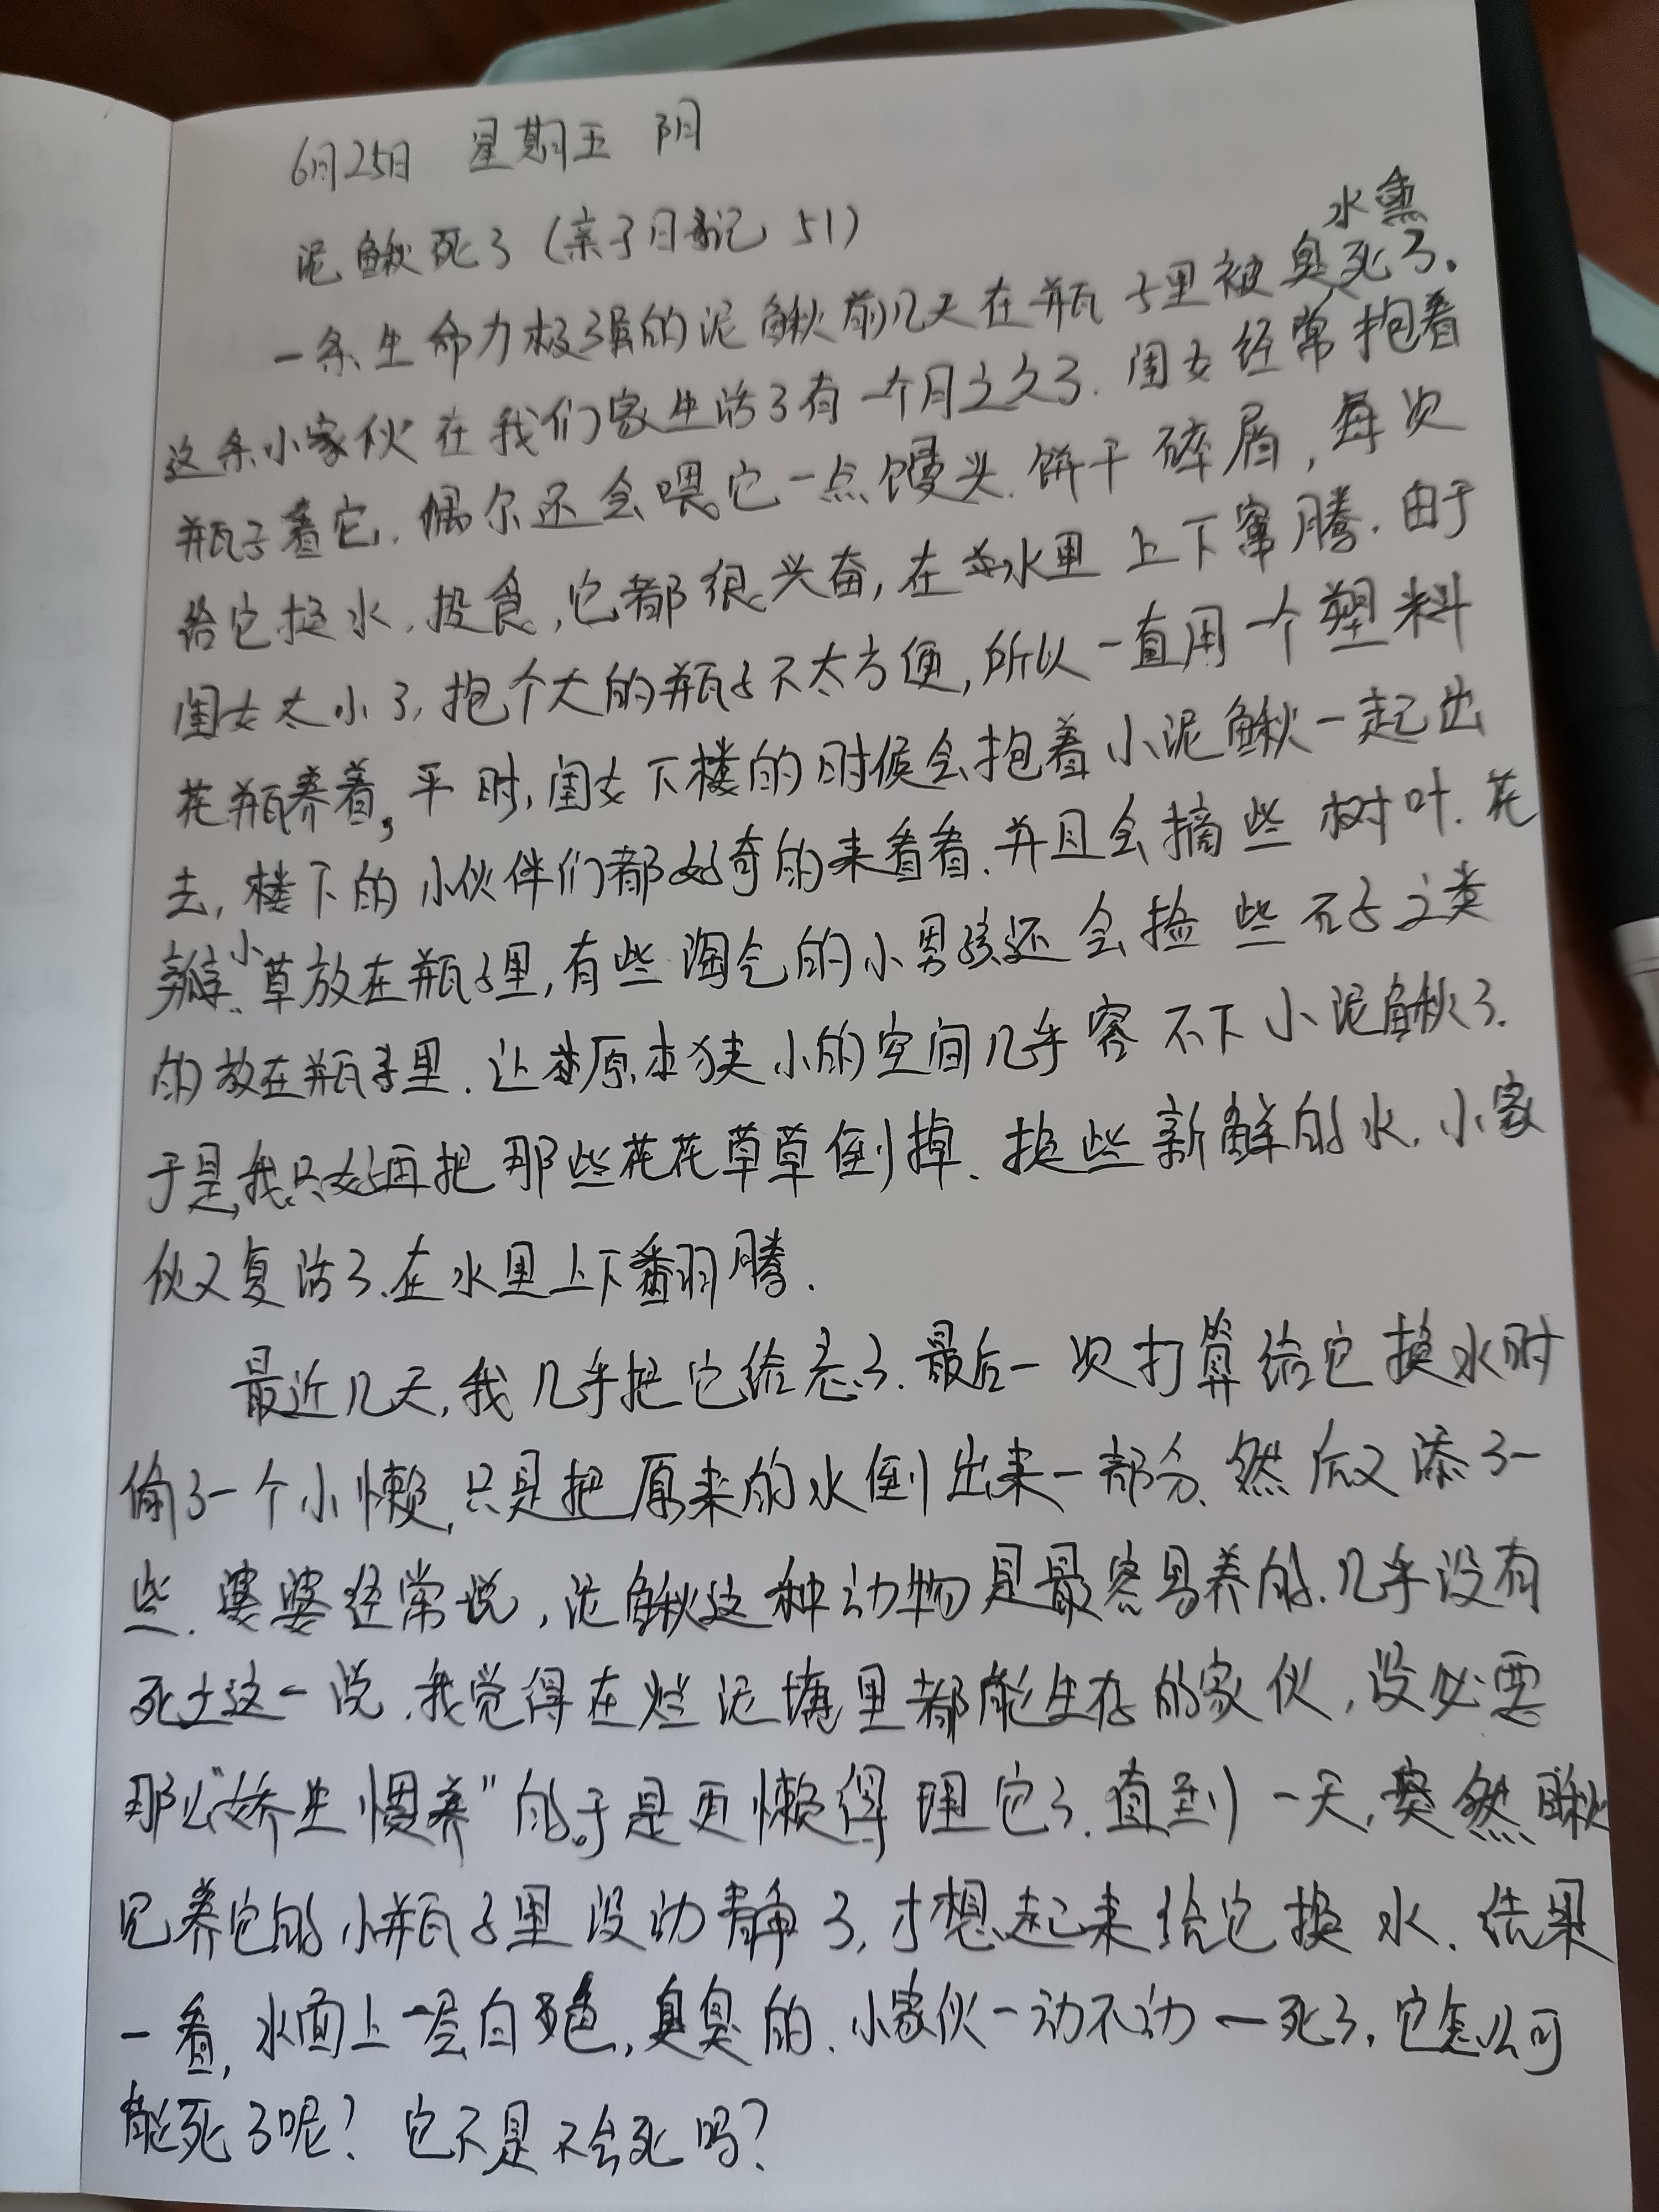 6月25日 星期五 阴
泥鳅死了（亲子日记 51）
水熏
一条生命力极强的泥鳅前几天在瓶子里被臭死了。
这条小家伙在我们家生活了有一个月之久了.闺女经常抱着
瓶子看它.偶尔还会喂它一点馒头.饼干碎屑,每次
给它换水.投食,它都很兴奋,在水里上下窜腾.由于
闺女太小了,抱个大的瓶子不太方便,所以一直用一个塑料
花瓶养着。平时,闺女下楼的时候会抱着小泥鳅一起出
去,楼下的小伙伴们都好奇的来看看.并且会摘些树叶.花
瓣、小草放在瓶子里,有些淘气的小男孩还会捡些石子之类
的放在瓶子里.让原本狭小的空间几乎容不下小泥鳅了.
于是,我只好再把那些花花草草倒掉、换些新鲜的水.小家
伙又复活了.在水里上下翻腾.
最近几天,我几乎把它给忘了.最后一次打算给它换水时
偷了一个小懒,只是把原来的水倒出来一部分、然后又添了一
些.婆婆经常说,泥鳅这种动物是最容易养的.几乎没有
死去这一说.我觉得在烂泥塘里都能生存的家伙,没必要
那么“娇生惯养”的。于是更懒得理它了.直到一天,突然瞅
见养它的小瓶子里没动静了,才想起来给它换水.结果
一看,水面上一层白色,臭臭的.小家伙一动不动一死了.它怎么可
能死了呢?它不是不会死吗?